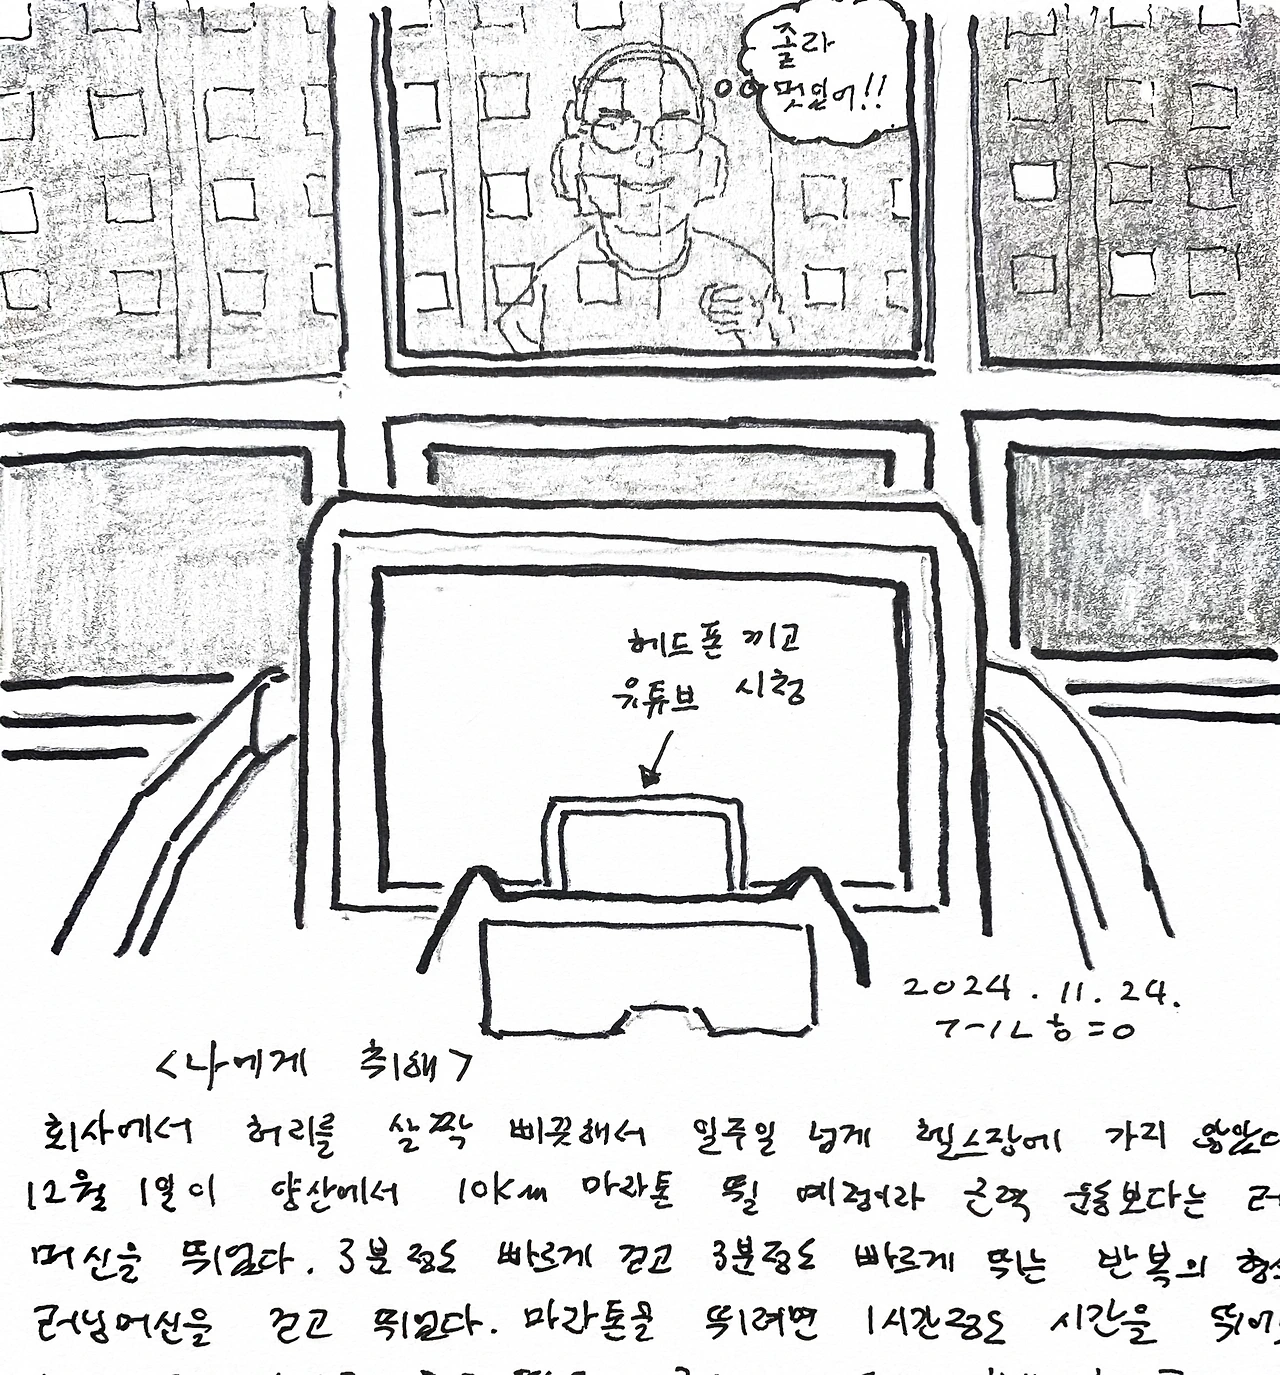 졸라
멋있어!!
헤드폰 끼고
유튜브 시청
2024. 11. 24.
<나에게 취해>
회사에서 허리를 살짝 삐끗해서 일주일 넘게 헬스장에 가지 않았다
12월 1일이 양산에서 10km 마라톤 뛸 예정이라 근력 운동보다는 러
머신을 뛰었다. 3분 정도 빠르게 걷고 3분정도 빠르게 뛰는 반복의 형
러닝머신을 걷고 뛰었다. 마라톤을 뛰려면 1시간정도 시간을 뛰어